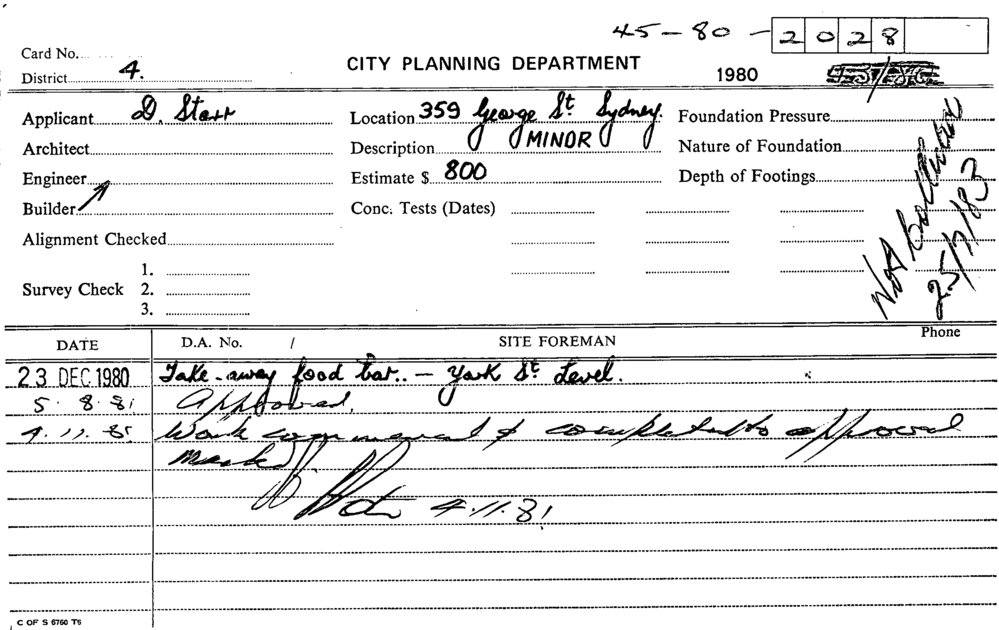 45-80-2028
Card No.
District 4.
CITY PLANNING DEPARTMENT
1980
Applicant D. Starr
Location 359 George St. Sydney.
Foundation Pressure
Architect
Description MINOR
Nature of Foundation
Engineer
Estimate $ 800
Depth of Footings
Builder
Conc. Tests (Dates)
Alignment Checked
Survey Check 1.
2.
3.
Not
25/7/83
Phone
DATE D.A. No. / SITE FOREMAN
23 DEC 1980 Take-away food bar.. — York St. Level.
5.8.81 Approved.
4.11.81 Work commenced & completed to approval
4.11.81
C OF S 6760 T6